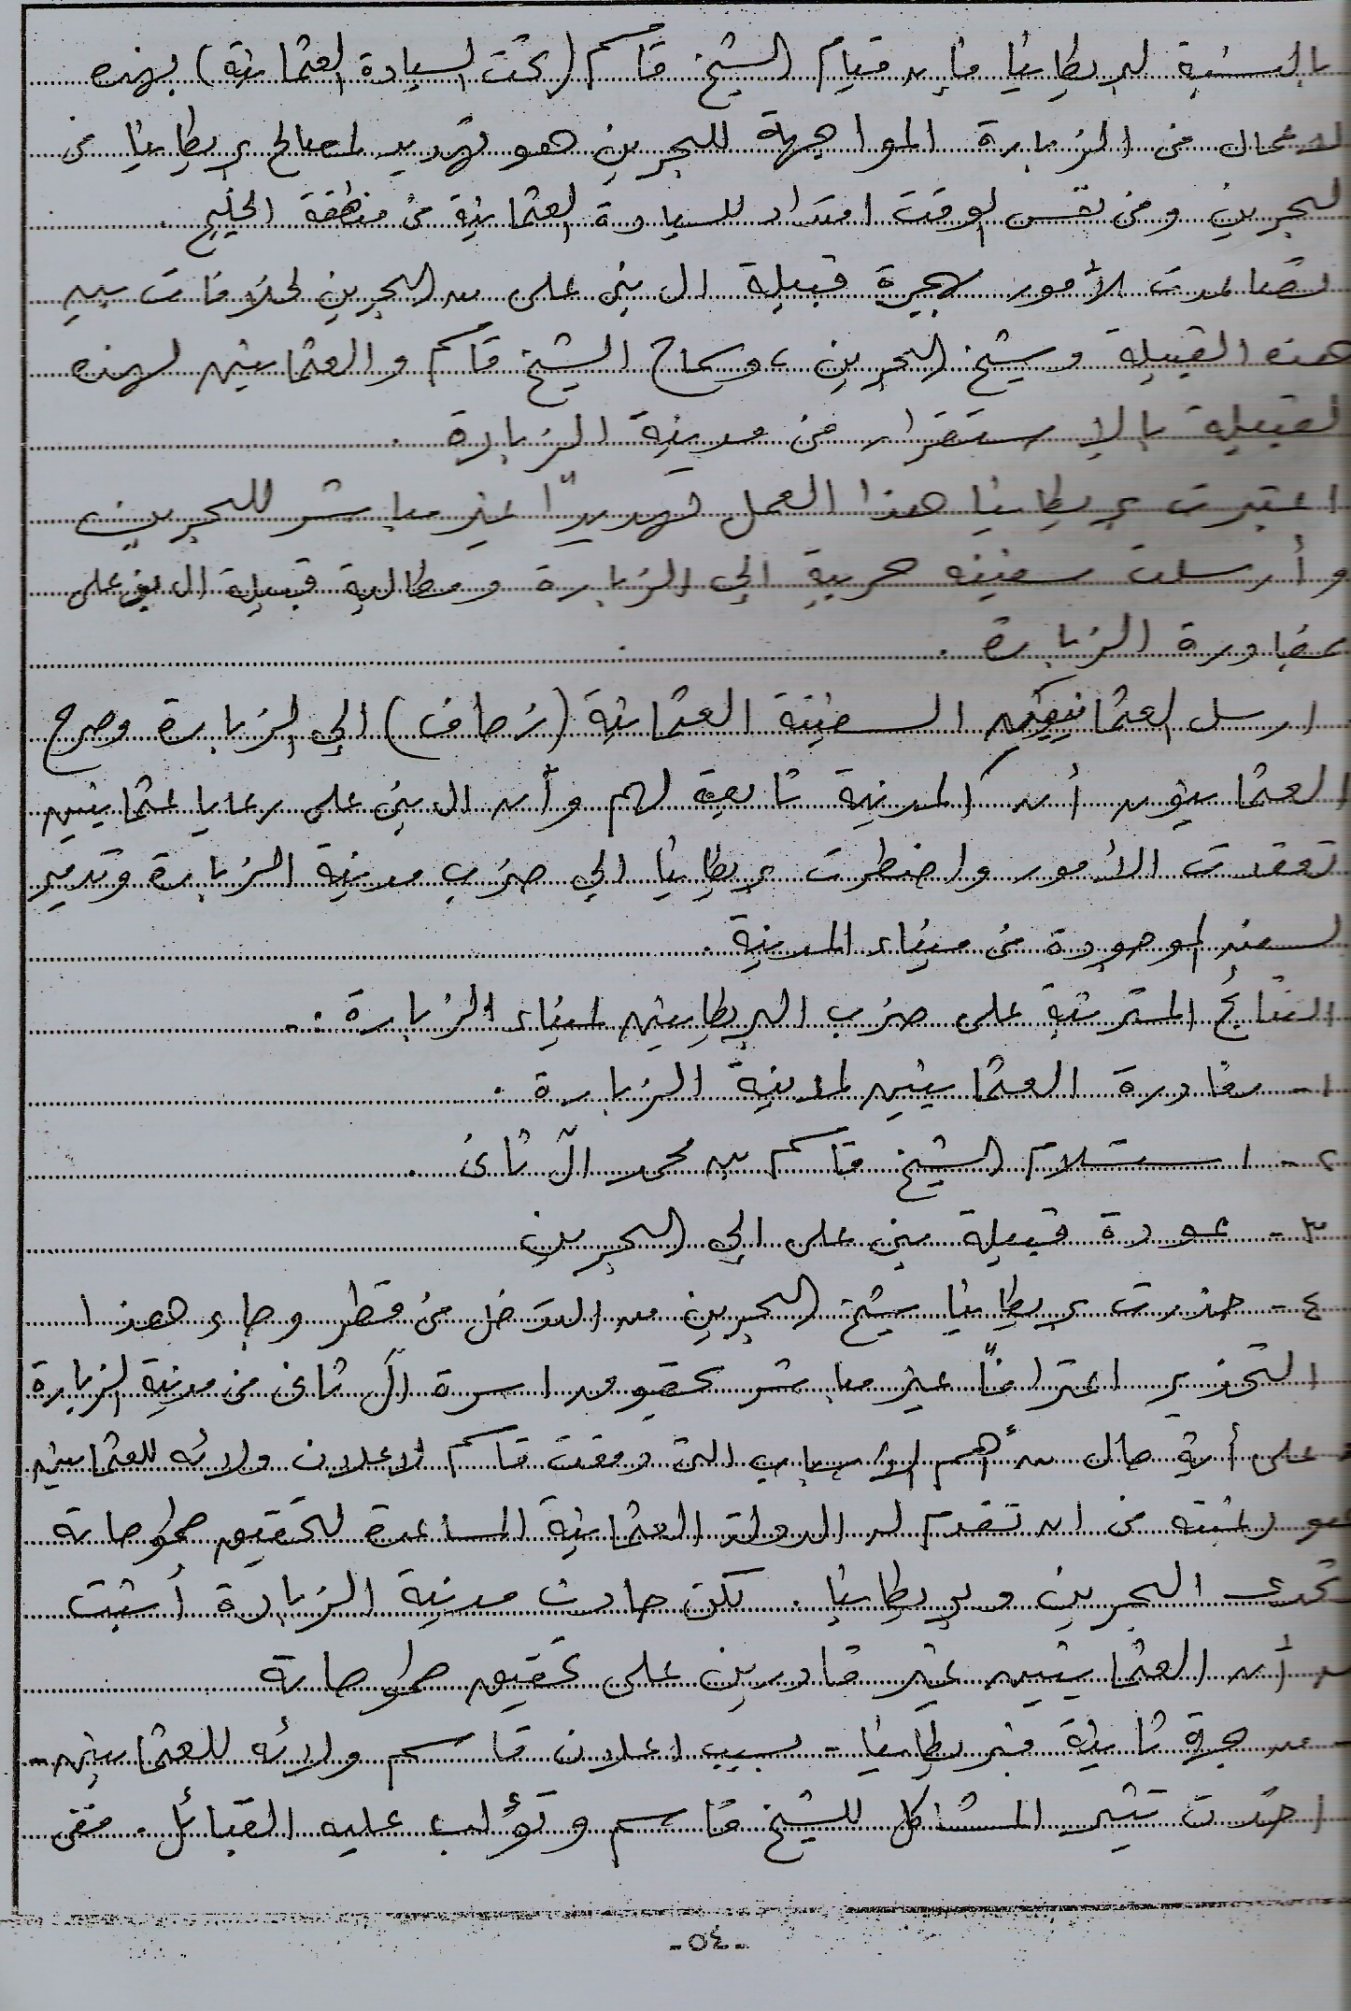 بالنسبة لبريطانيا فإن قيام الشيخ قاسم (تحت السيادة العثمانية) بهذه
الاعمال في الزبارة المواجهة للبحرين هو تهديد لمصالح بريطانيا في
البحرين وفي نفس الوقت امتداد للسيادة العثمانية في منطقة الخليج .
تصاعدت الأمور لهجرة قبيلة ال بني على من البحرين لخلافات بين
هذه القبيلة وشيخ البحرين ، وسماح الشيخ قاسم والعثمانين لهذه
القبيلة بالإستقرار في مدينة الزبارة .
اعتبرت بريطانيا هذا العمل تهديدًا غير مباشر للبحرين
وأرسلت سفينه حربية الي الزبارة ومطالبة قبيلة ال بني على
بمغادرة الزبارة .
ارسل العثمانيين السفينة العثمانية (زحاف) الي الزبارة وصرح
العثمانيون أن المدينة تابعة لهم وأن ال بني على رعايا عثمانيين
تعقدت الأمور واضطرت بريطانيا الي ضرب مدينة الزبارة وتدمير
السفن الموجودة في ميناء المدينة .
النتائج المترتبة على ضرب البريطانين لميناء الزبارة :-
١- مغادرة العثمانيين لمدينة الزبارة .
٢- استسلام الشيخ قاسم بن محمد آل ثاني .
٣- عودة قبيلة بني على الي البحرين
٤- حذرت بريطانيا شيخ البحرين من التدخل في قطر وجاء هذا
التحذير اعترافاً غير مباشر بحقوق اسرة آل ثاني في مدينة الزبارة
وعلى أية حال من أهم الأسباب التي دفعت قاسم لإعلان ولائه للعثمانين
هو رغبته في ان تقدم له الدولة العثمانية المساعدة لتحقيق طموحاته
تحدى البحرين وبريطانيا . لكن حادث مدينة الزبارة أثبت
له أن العثمانيين غير قادرين على تحقيق طموحاته
- من جهة ثانية فبريطانيا - بسبب اعلان قاسم ولائه للعثمانين -
اخذت تثير المشاكل للشيخ قاسم وتؤلب عليه القبائل . ففي
-٥٤-